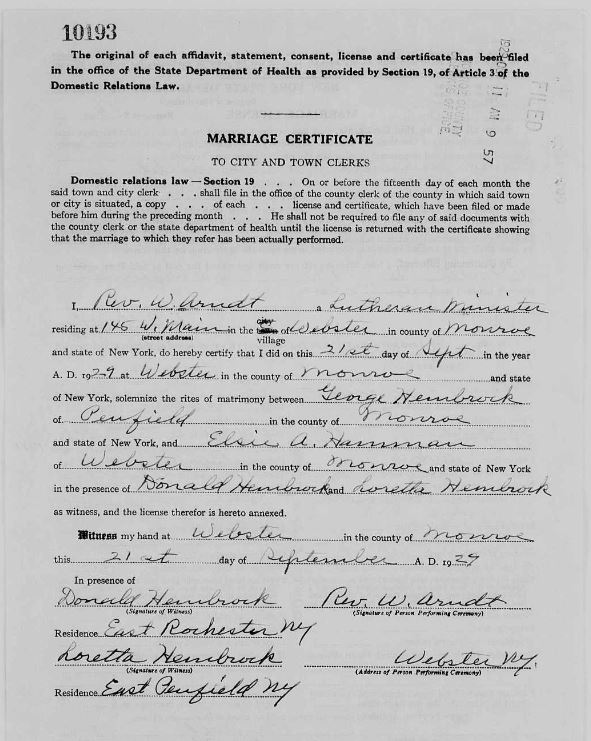 10193
The original of each affidavit, statement, consent, license and certificate has been filed
in the office of the State Department of Health as provided by Section 19, of Article 3 of the
Domestic Relations Law.
FILED
11 AM 9 57
MARRIAGE CERTIFICATE
TO CITY AND TOWN CLERKS
Domestic relations law — Section 19 . . . On or before the fifteenth day of each month the
said town and city clerk . . . shall file in the office of the county clerk of the county in which said town
or city is situated, a copy . . . of each . . . license and certificate, which have been filed or made
before him during the preceding month . . . He shall not be required to file any of said documents with
the county clerk or the state department of health until the license is returned with the certificate showing
that the marriage to which they refer has been actually performed.
I, Rev. W. Arndt a Lutheran Minister
residing at 145 W. Main in the city town of Webster in county of Monroe
(street address) village
and state of New York, do hereby certify that I did on this 21st day of Sept in the year
A. D. 1929 at Webster in the county of Monroe and state
of New York, solemnize the rites of matrimony between George Hembrock
of Penfield in the county of Monroe
and state of New York, and Elsie A. Hamman
of Webster in the county of Monroe and state of New York
in the presence of Donald Hembrock and Loretta Hembrock
as witness, and the license therefor is hereto annexed.
Witness my hand at Webster in the county of Monroe
this 21st day of September A. D. 1929
In presence of
Donald Hembrock Rev. W. Arndt
(Signature of Witness) (Signature of Person Performing Ceremony)
Residence East Rochester NY
Loretta Hembrock Webster NY.
(Signature of Witness) (Address of Person Performing Ceremony)
Residence East Penfield NY